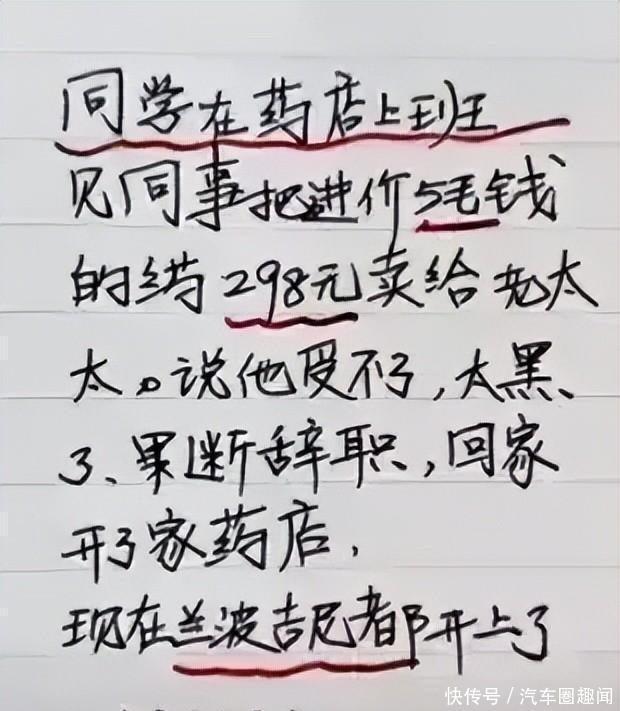 同学在药店上班
见同事把进价5毛钱
的药298元卖给老太
太。说他受不了,太黑、
了、果断辞职,回家
开了家药店,
现在兰波吉尼都开上了
快传号/汽车圈趣闻